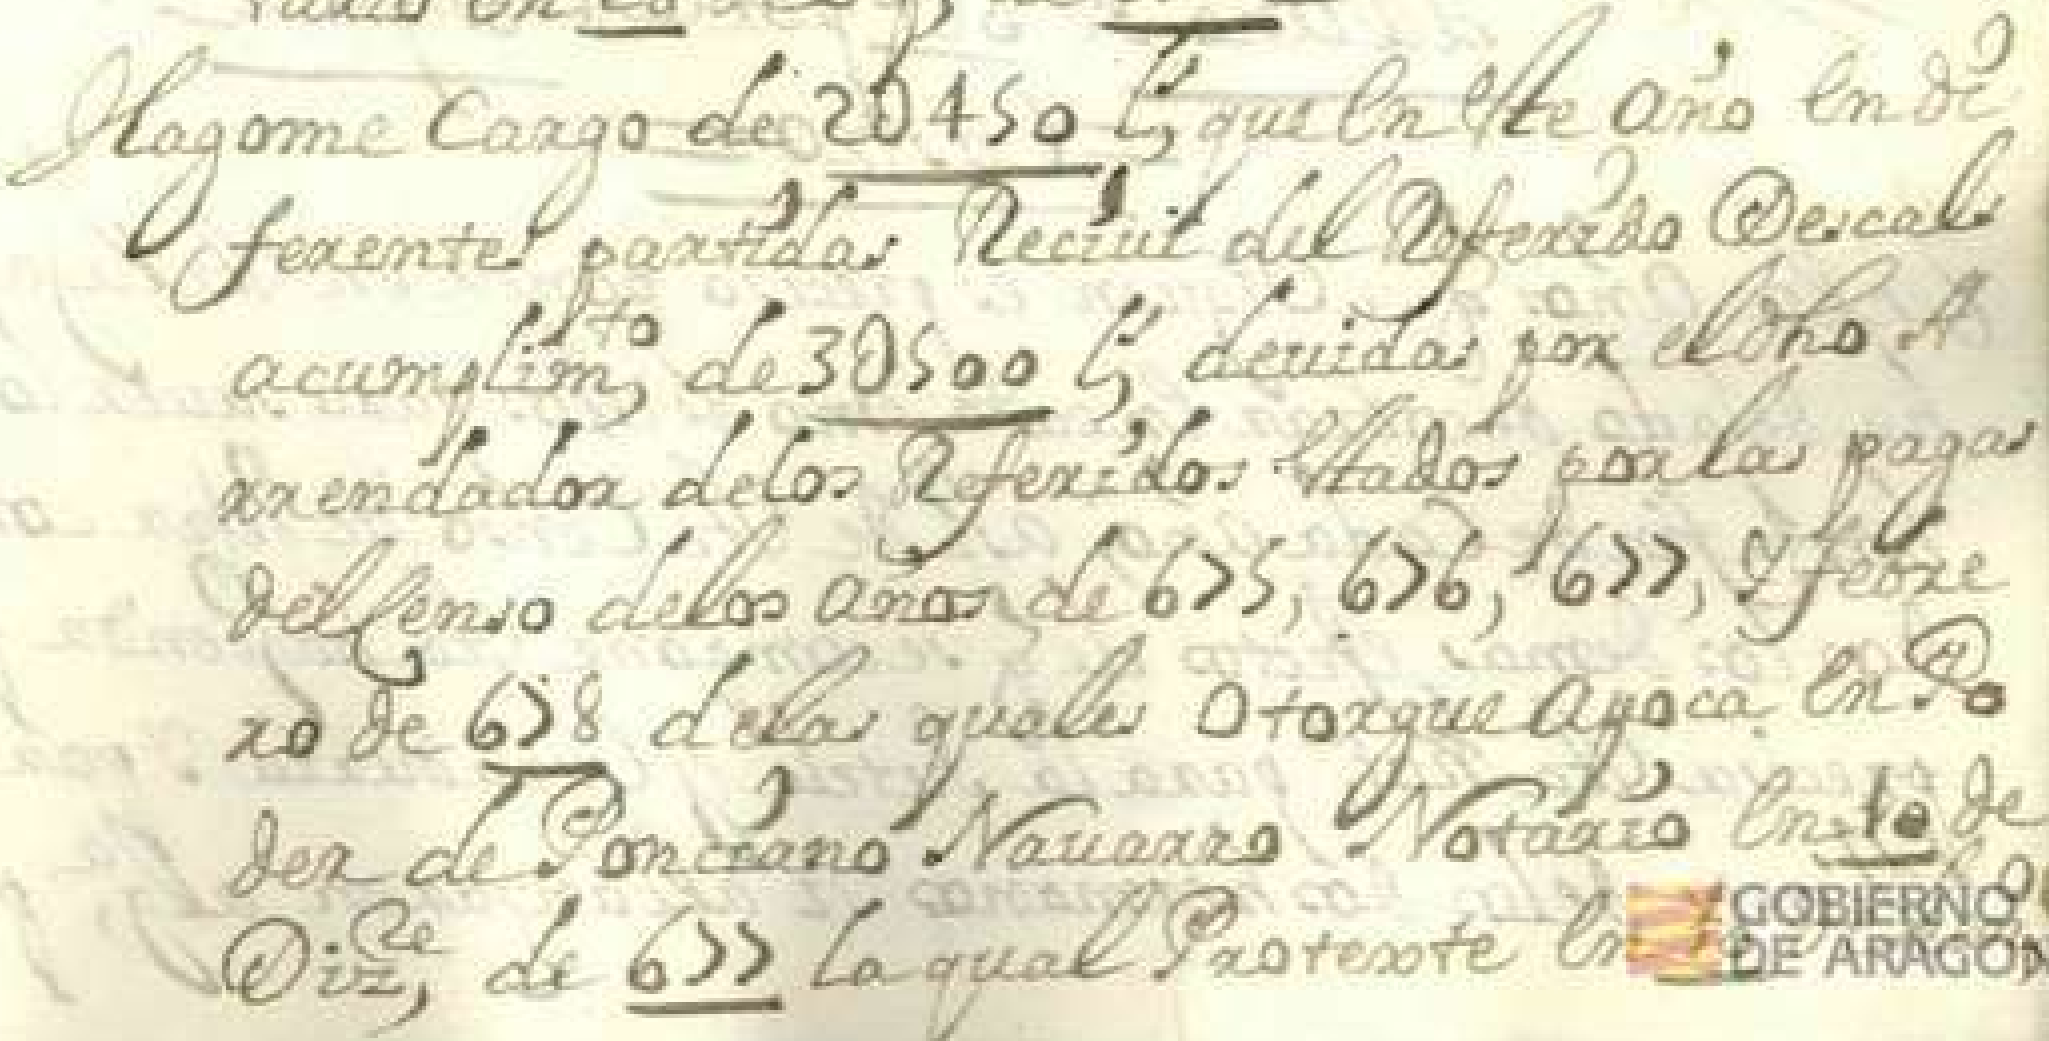 Hagome Cargo de 20450 ls que en este año en di
ferentes partidas Reciui del Referido Descals
a cumplimto, de 30500 ls deuidas por el dho A
rrendador delos Referidos estados por las pagas
del Censo delos años de 675, 676, 677, Y febre
ro de 678 delas quales otorgue apoca en Po
der de Ponciano Nauarro Notario en de
Dizre, de 677 la qual Protexte en
GOBIERNO
DE ARAGON